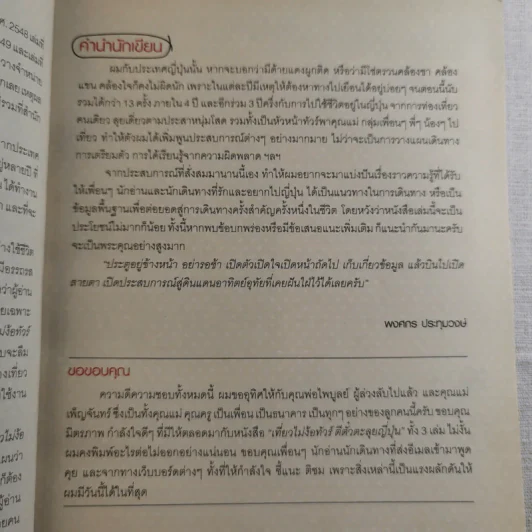 ศ. 2548 เล่มที่
49 และเล่มที่
วางจำหน่าย
รวมที่สำนัก
จากประเทศ
ได้ทำงาน
และที่จะ
มือรรถรส
ว่าผู้อ่าน
ยเฉพาะ
ไม่ง้อทัวร์
บจะลืม
ใช้งาน
ไม่ง้อ
ก็ต้อง
ผู้อ่าน
คำนำนักเขียน
ผมกับประเทศญี่ปุ่นนั้น หากจะบอกว่ามีด้ายแดงผูกติด หรือว่ามีโซ่ตรวนคล้องขา คล้อง
แขน คล้องใจก็คงไม่ผิดนัก เพราะในแต่ละปีมีเหตุให้ต้องหาทางไปเยือนได้อยู่บ่อยๆ จนตอนนี้นับ
รวมได้กว่า 13 ครั้ง ภายใน 4 ปี และอีกร่วม 3 ปีครึ่งกับการไปใช้ชีวิตอยู่ในญี่ปุ่น จากการท่องเที่ยว
คนเดียว ลุยเดี่ยวตามประสาหนุ่มโสด รวมทั้งเป็นหัวหน้าทัวร์พาคุณแม่ กลุ่มเพื่อนๆ พี่ๆ น้องๆ ไป
เที่ยว ทำให้ตัวผมได้เพิ่มพูนประสบการณ์ต่างๆ อย่างมากมาย ไม่ว่าจะเป็นการวางแผนเดินทาง
การเตรียมตัว การได้เรียนรู้จากความผิดพลาด ฯลฯ
จากประสบการณ์ที่สั่งสมมานานนี้เอง ทำให้ผมอยากจะมาแบ่งปันเรื่องราวความรู้ที่ได้รับ
ให้เพื่อนๆ นักอ่านและนักเดินทางที่รักและอยากไปญี่ปุ่น ได้เป็นแนวทางในการเดินทาง หรือเป็น
ข้อมูลพื้นฐานเพื่อต่อยอดสู่การเดินทางครั้งสำคัญครั้งหนึ่งในชีวิต โดยหวังว่าหนังสือเล่มนี้จะเป็น
ประโยชน์ไม่มากก็น้อย ทั้งนี้หากพบข้อบกพร่องหรือมีข้อเสนอแนะเพิ่มเติม ก็แนะนำกันมานะครับ
จะเป็นพระคุณอย่างสูงมาก
“ประตูอยู่ข้างหน้า อย่ารอช้า เปิดตัวเปิดใจเปิดหน้าถัดไป เก็บเกี่ยวข้อมูล แล้วบินไปเปิด
สายตา เปิดประสบการณ์สู่ดินแดนอาทิตย์อุทัยที่เคยฝันใฝ่ไว้ได้เลยครับ”
พงศกร ประทุมวงษ์
ขอขอบคุณ
ความดีความชอบทั้งหมดนี้ ผมขออุทิศให้กับคุณพ่อไพบูลย์ ผู้ล่วงลับไปแล้ว และคุณแม่
เพ็ญจันทร์ ซึ่งเป็นทั้งคุณแม่ คุณครู เป็นเพื่อน เป็นธนาคาร เป็นทุกๆ อย่างของลูกคนนี้ครับ ขอบคุณ
มิตรภาพ กำลังใจดีๆ ที่มีให้ตลอดมากับหนังสือ “เที่ยวไม่ง้อทัวร์ ตีตั๋วตะลุยญี่ปุ่น” ทั้ง 3 เล่ม ไม่งั้น
ผมคงพิมพ์อะไรต่อไม่ออกอย่างแน่นอน ขอบคุณเพื่อนๆ นักอ่านนักเดินทางที่ส่งอีเมลเข้ามาพูด
คุย และจากทางเว็บบอร์ดต่างๆ ทั้งที่ให้กำลังใจ ชี้แนะ ติชม เพราะสิ่งเหล่านี้เป็นแรงผลักดันให้
ผมมีวันนี้ได้ในที่สุด